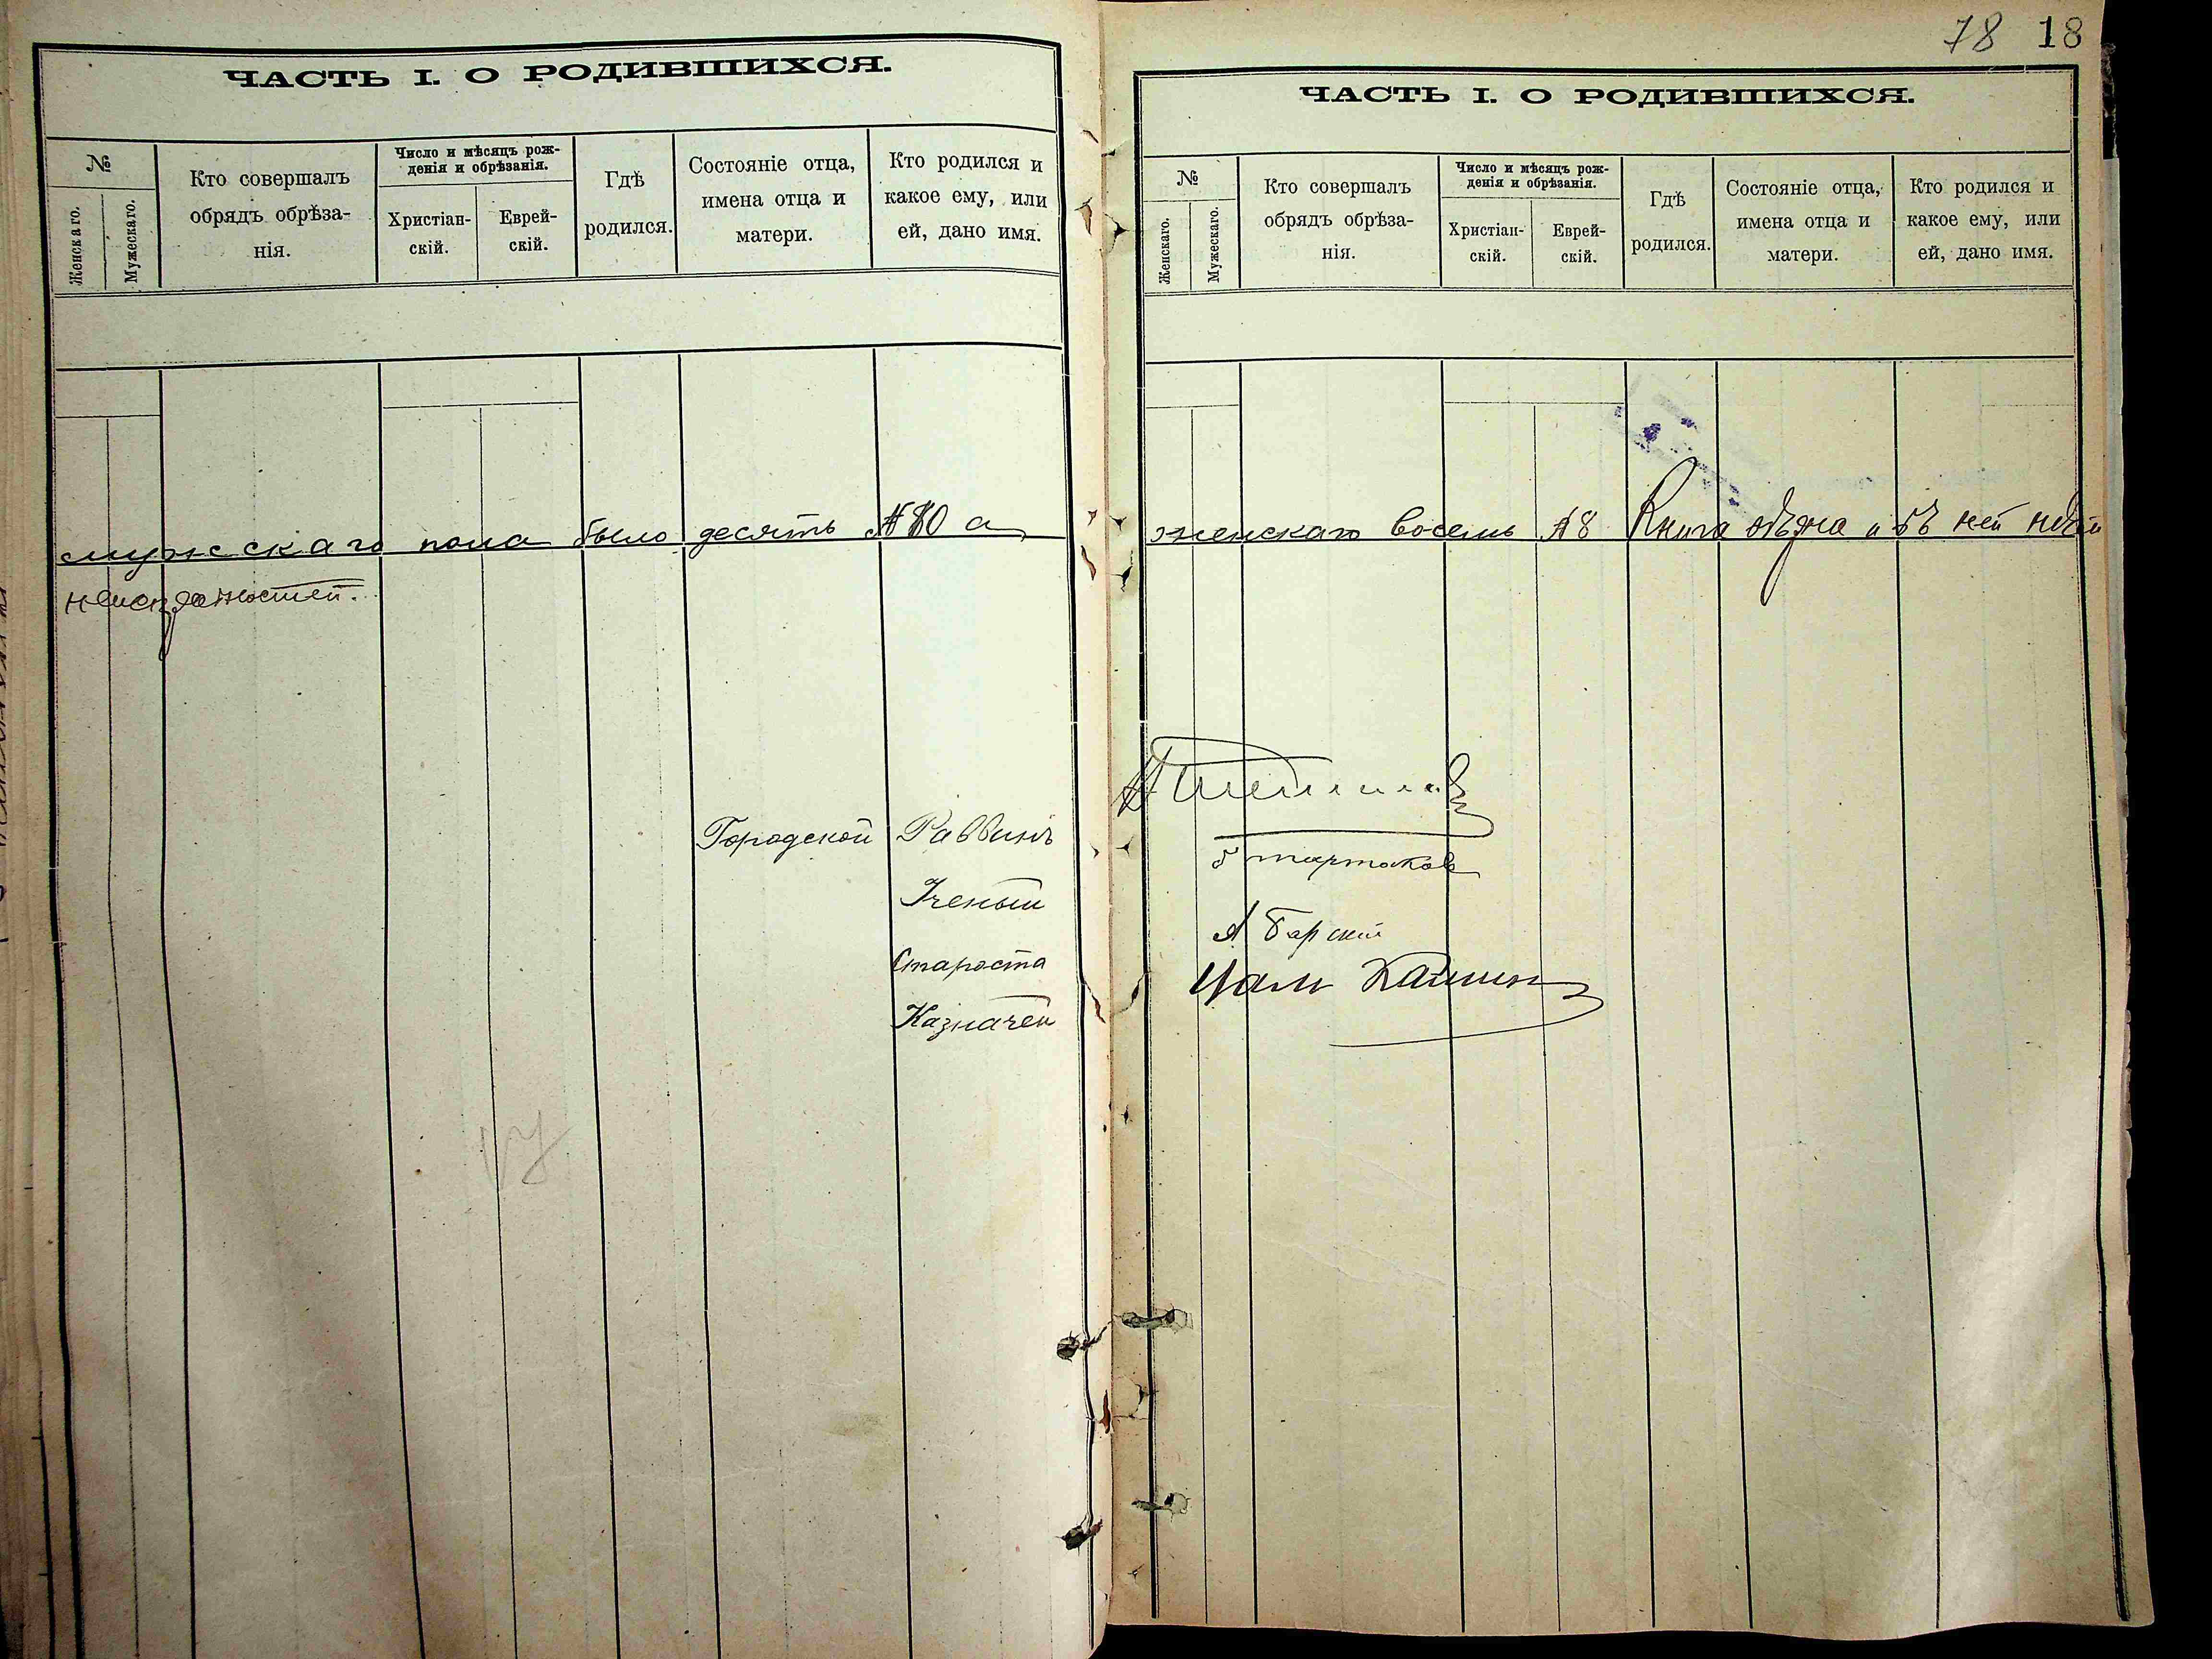 ЧАСТЬ I. О РОДИВШИХСЯ.
№
Женскаго.
Мужескаго.
Кто совершалъ
обрядъ обрѣза-
нія.
Число и мѣсяцъ рож-
денія и обрѣзанія.
Христіан-
скій.
Еврей-
скій.
Гдѣ
родился.
Состояніе отца,
имена отца и
матери.
Кто родился и
какое ему, или
ей, дано имя.
мужскаго пола было десять № 10 а
Городской Раввинъ
Ученый
Староста
Казначей
78 18
ЧАСТЬ I. О РОДИВШИХСЯ.
№
Женскаго.
Мужескаго.
Кто совершалъ
обрядъ обрѣза-
нія.
Число и мѣсяцъ рож-
денія и обрѣзанія.
Христіан-
скій.
Еврей-
скій.
Гдѣ
родился.
Состояніе отца,
имена отца и
матери.
Кто родился и
какое ему, или
ей, дано имя.
женскаго восемь № 8 Книга и въ ней
А Барскій